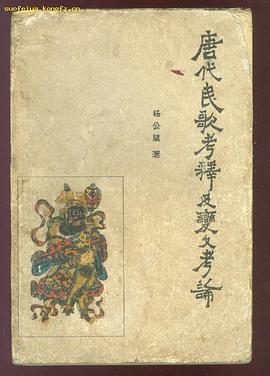 suofeiya.kongfz.cn
唐代民歌考釋及變文考論
杨公驥 著